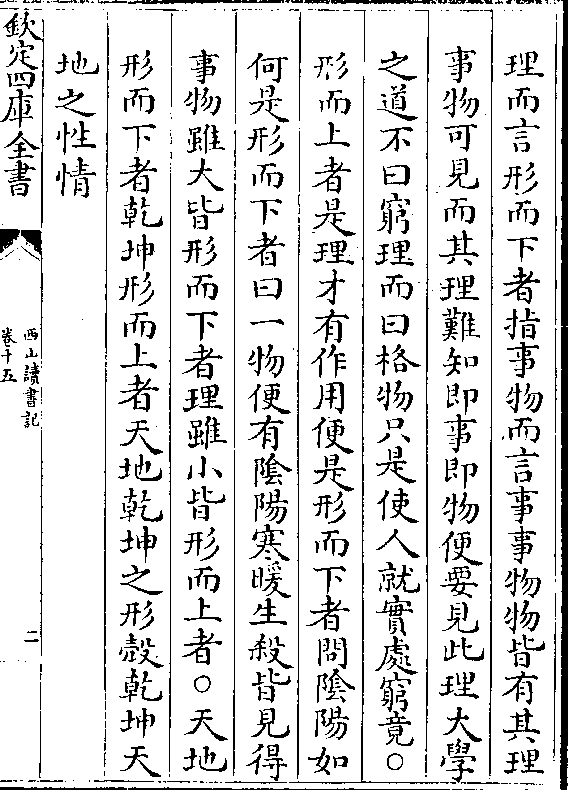 理而言形而下者指事物而言事事物物皆有其理
事物可見而其理難知即事即物便要見此理大學
之道不曰窮理而曰格物只是使人就實處窮竟○
形而上者是理才有作用便是形而下者問陰陽如
何是形而下者曰一物便有陰陽寒暖生殺皆見得
事物雖大皆形而下者理雖小皆形而上者○天地
形而下者乾坤形而上者天地乾坤之形殼乾坤天
地之性情
欽定四庫全書
西山讀書記
卷十五
二